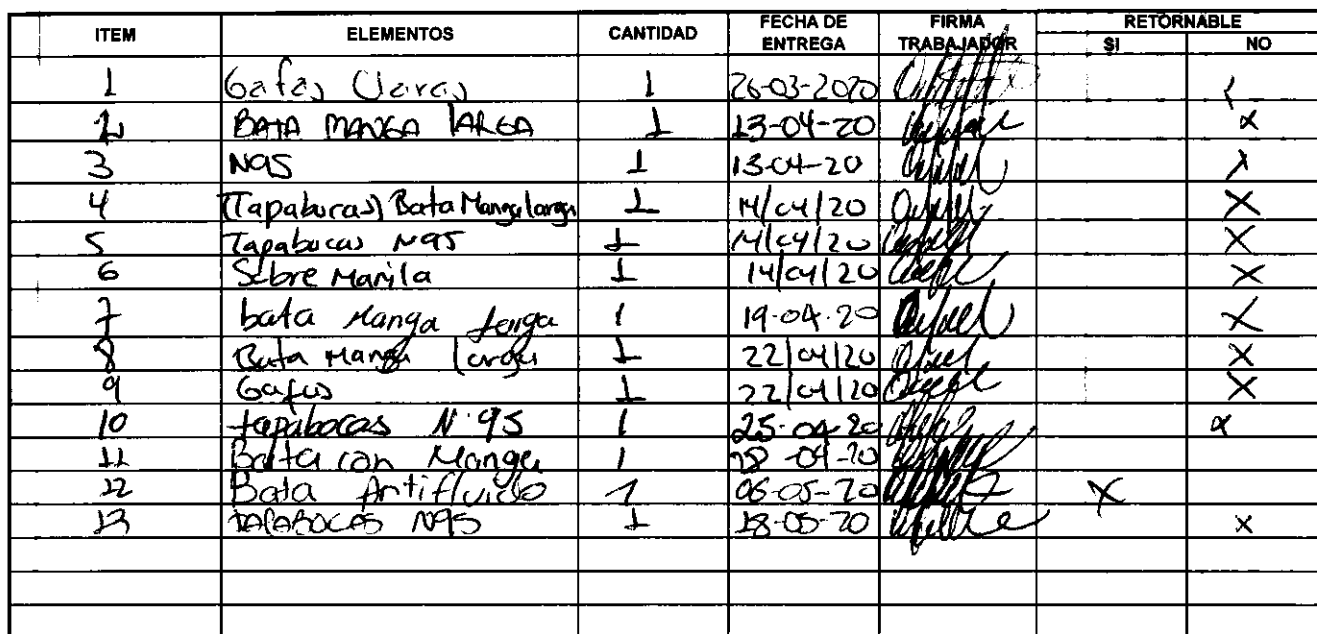 ITEM ELEMENTOS CANTIDAD FECHA DE ENTREGA FIRMA TRABAJADOR RETORNABLE
SI NO
1 Gafas Claras 1 26-03-2020
2 BATA MANGA LARGA 1 13-04-20 X
3 N95 1 13-04-20 X
4 (Tapabocas) Bata Manga larga 1 14/04/20 X
5 Tapabocas N95 1 14/04/20 X
6 Sobre Manila 1 14/04/20 X
7 bata Manga larga 1 19-04-20 X
8 Bata Manga larga 1 22/04/20 X
9 Gafas 1 22/04/20 X
10 tapabocas N·95 1 25-04-20 X
11 Bata con Manga 1 28-04-20
12 Bata Antifluido 1 06-05-20 X
13 TAPABOCAS N95 1 18-05-20 X